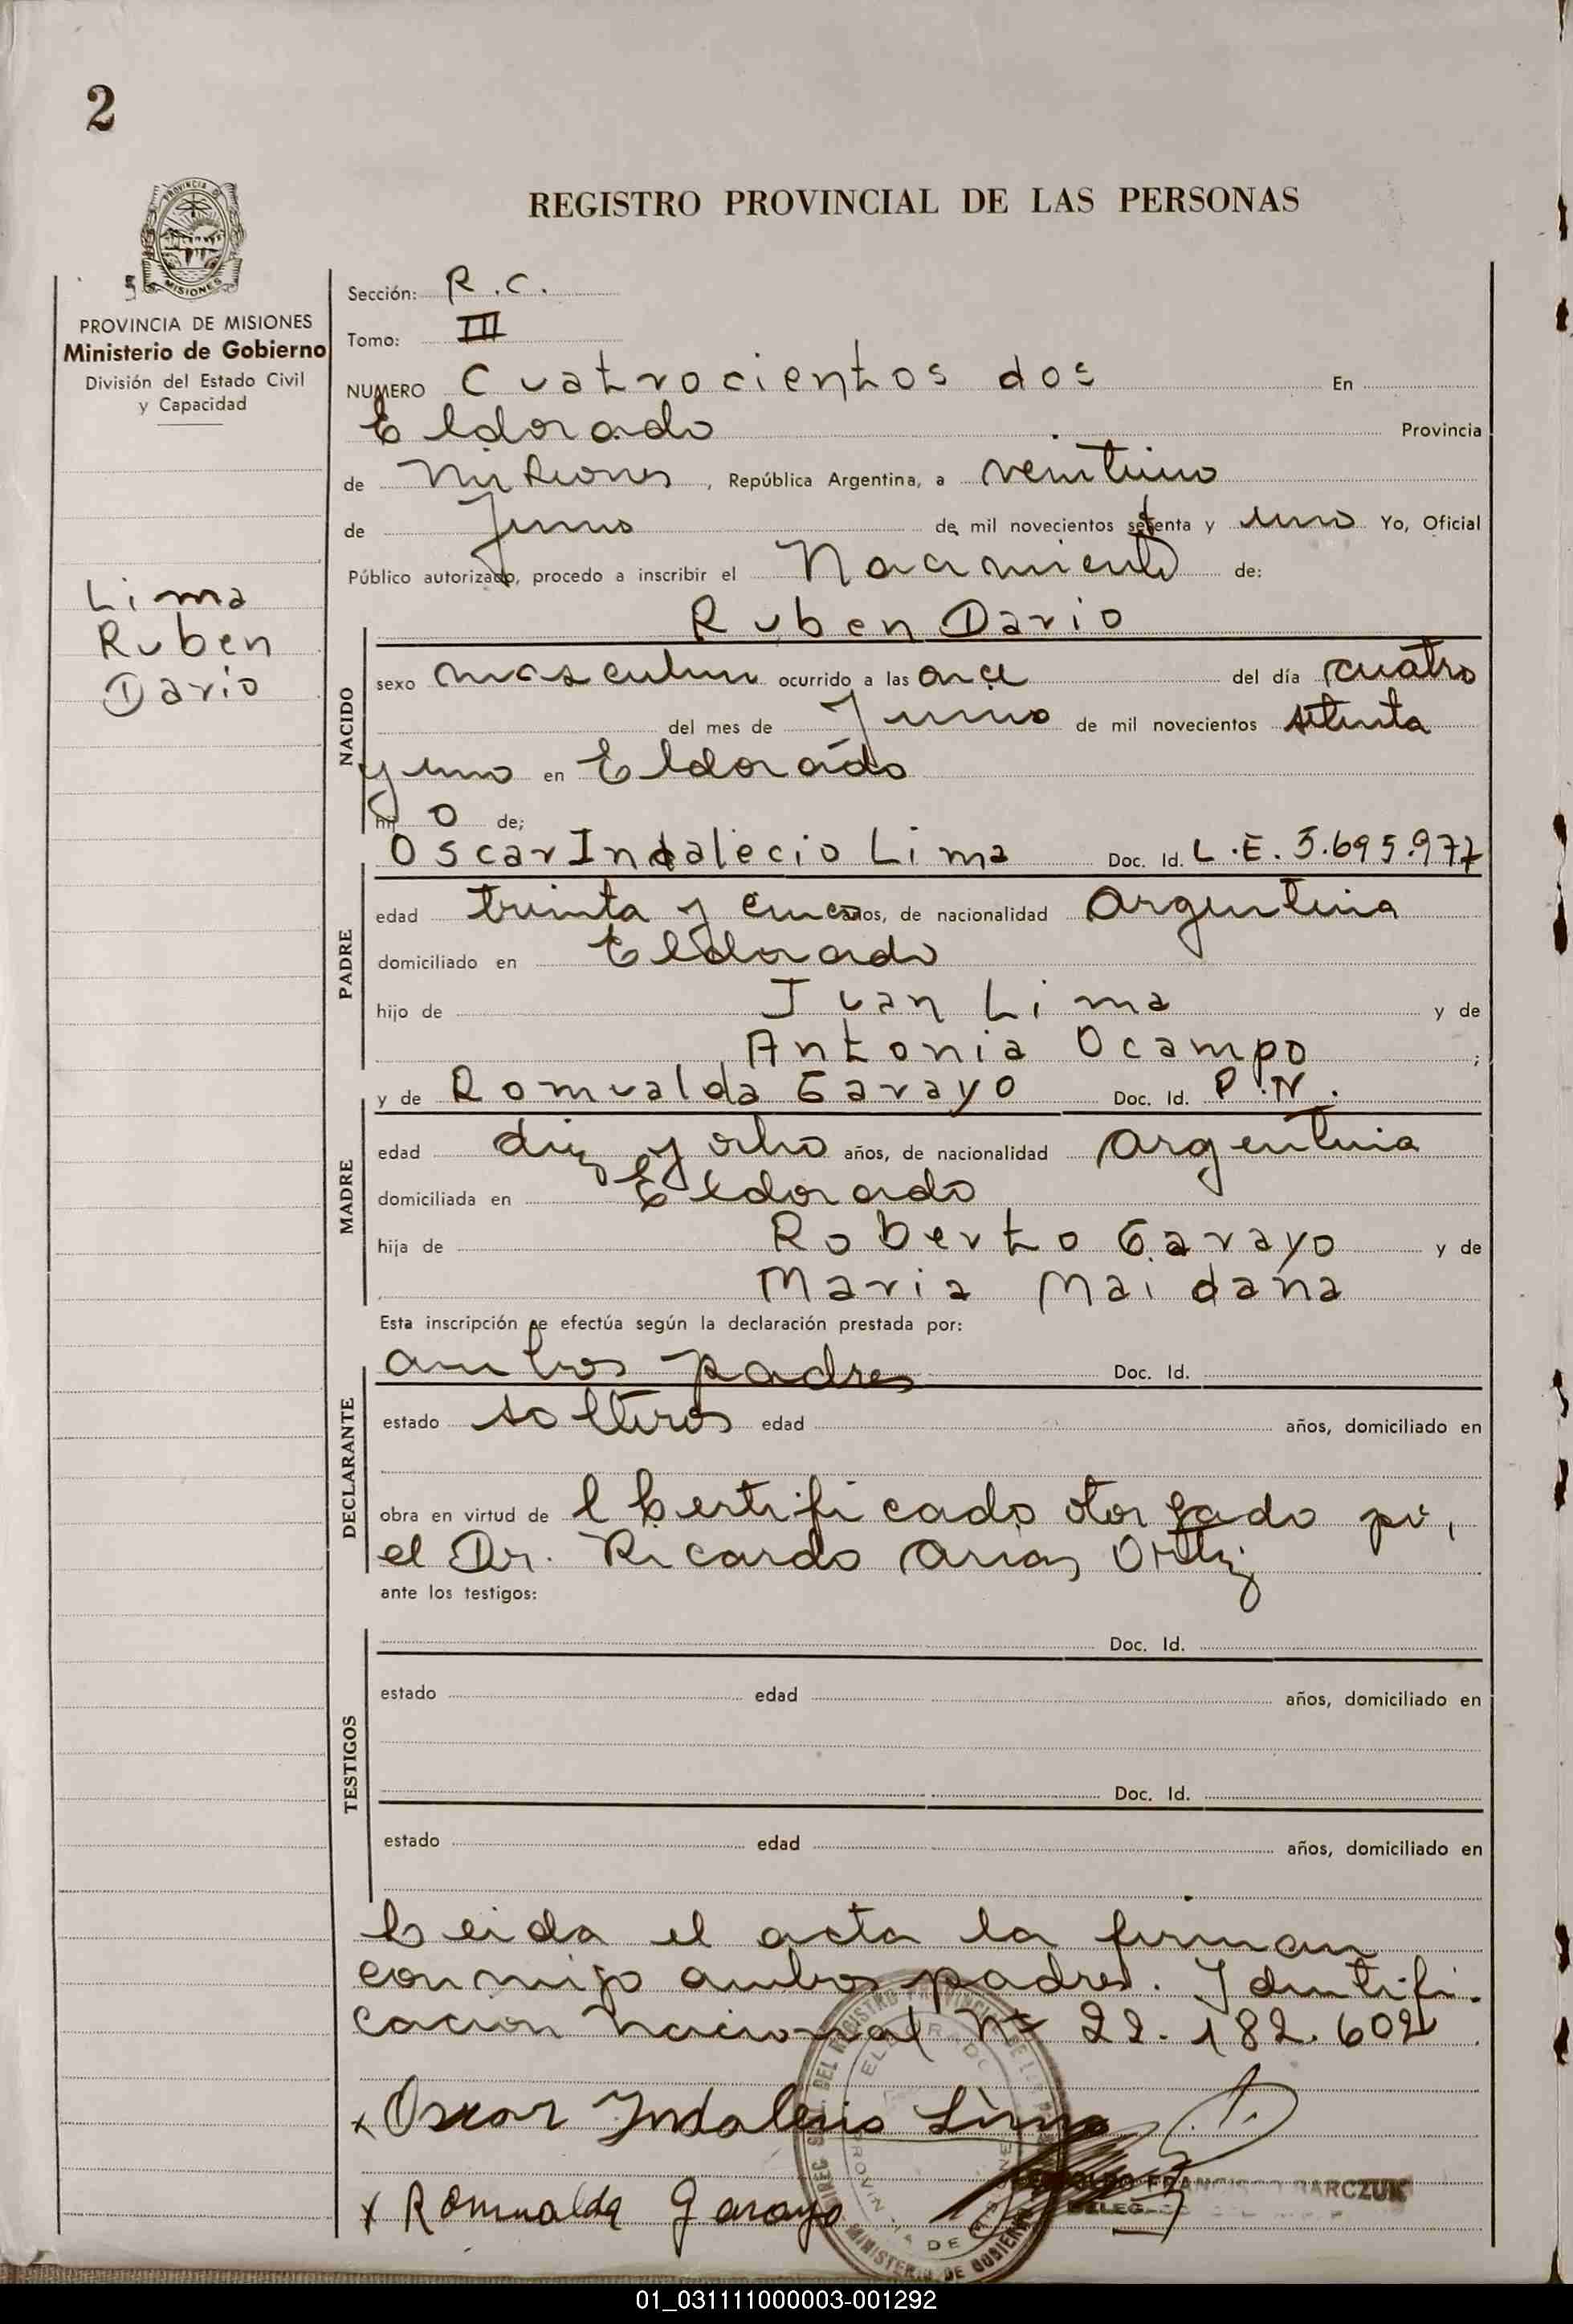 2
REGISTRO PROVINCIAL DE LAS PERSONAS
PROVINCIA DE MISIONES
Ministerio de Gobierno
División del Estado Civil
y Capacidad
Lima
Ruben
Dario
Sección: R.C.
Tomo: III
NUMERO Cuatrocientos dos En
Eldorado Provincia
de Misiones, República Argentina, a veintiuno
de Junio de mil novecientos setenta y uno Yo, Oficial
Público autorizado, procedo a inscribir el Nacimiento de:
Ruben Dario
NACIDO
sexo masculino ocurrido a las once del día cuatro
del mes de Junio de mil novecientos setenta
y uno en Eldorado
hijo de;
PADRE
Oscar Indalecio Lima Doc. Id. L.E. 5.695.977
edad treinta y cinco años, de nacionalidad Argentina
domiciliado en Eldorado
hijo de Juan Lima y de
Antonia Ocampo;
MADRE
y de Romualda Garayo Doc. Id. P.N.
edad diez y ocho años, de nacionalidad Argentina
domiciliada en Eldorado
hija de Roberto Garayo y de
Maria Maidana
Esta inscripción se efectúa según la declaración prestada por:
DECLARANTE
ambos padres Doc. Id.
estado solteros edad años, domiciliado en
obra en virtud de l Certificado otorgado por,
el Dr. Ricardo Arias Ortiz
ante los testigos:
TESTIGOS
Doc. Id.
estado edad años, domiciliado en
Doc. Id.
estado edad años, domiciliado en
Leida el acta la firman
conmigo ambos padres. Identifi-
cación Nacional Nº 22.182.602
x Oscar Indalecio Lima
x Romualda Garayo
FRANCISCO BARCZUK
DELEG
01_031111000003-001292